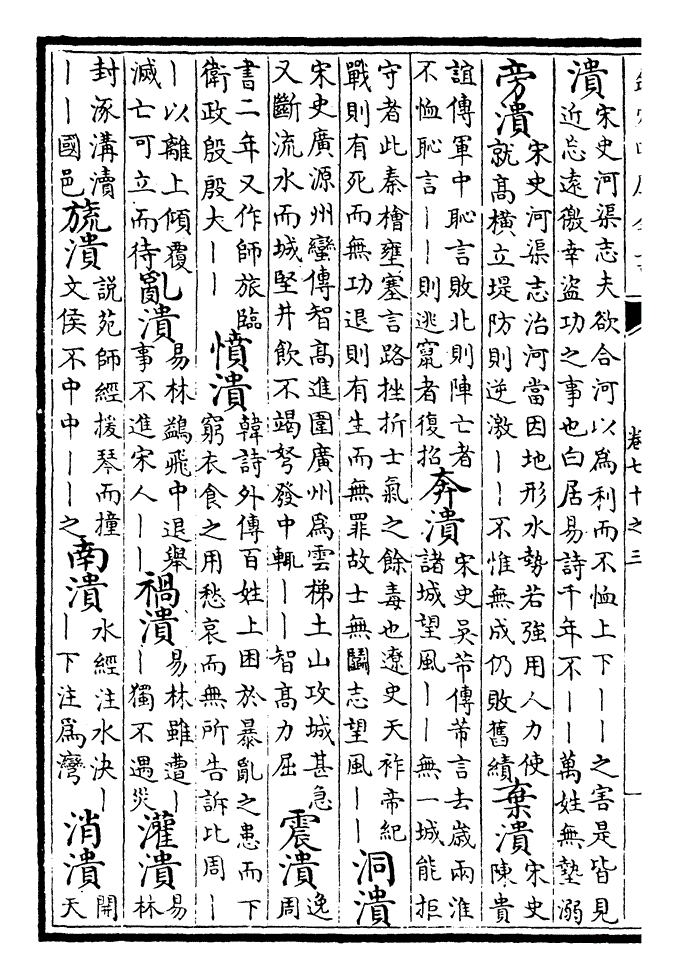 卷七十之三
潰
宋史河渠志夫欲合河以為利而不恤上下丨丨之害是皆見
近忘遠徼幸盜功之事也白居易詩千年不丨丨萬姓無墊溺
旁潰
宋史河渠志治河當因地形水勢若強用人力使
就高橫立堤防則逆激丨丨不惟無成仍敗舊績
棄潰
宋史
陳貴
誼傳軍中恥言敗北則陣亡者
不恤恥言丨丨則逃竄者復招
奔潰
宋史吳芾傳芾言去歲兩淮
諸城望風丨丨無一城能拒
守者此秦檜壅塞言路挫折士氣之餘毒也遼史天祚帝紀
戰則有死而無功退則有生而無罪故士無鬭志望風丨丨
洞潰
宋史廣源州蠻傳智高進圍廣州為雲梯土山攻城甚急
又斷流水而城堅井飲不竭弩發中輒丨丨智高力屈
震潰
逸
周
書二年又作師旅臨
衛政殷殷大丨丨
憤潰
韓詩外傳百姓上困於暴亂之患而下
窮衣食之用愁哀而無所告訴比周丨
丨以離上傾覆
滅亡可立而待
亂潰
易林鷁飛中退舉
事不進宋人丨丨
禍潰
易林雖遭丨
丨獨不遇災
灌潰
易
林
封涿溝瀆
丨丨國邑
旒潰
説苑師經援琴而撞
文侯不中中丨丨之
南潰
水經注水決丨
丨下注為灣
消潰
開
天